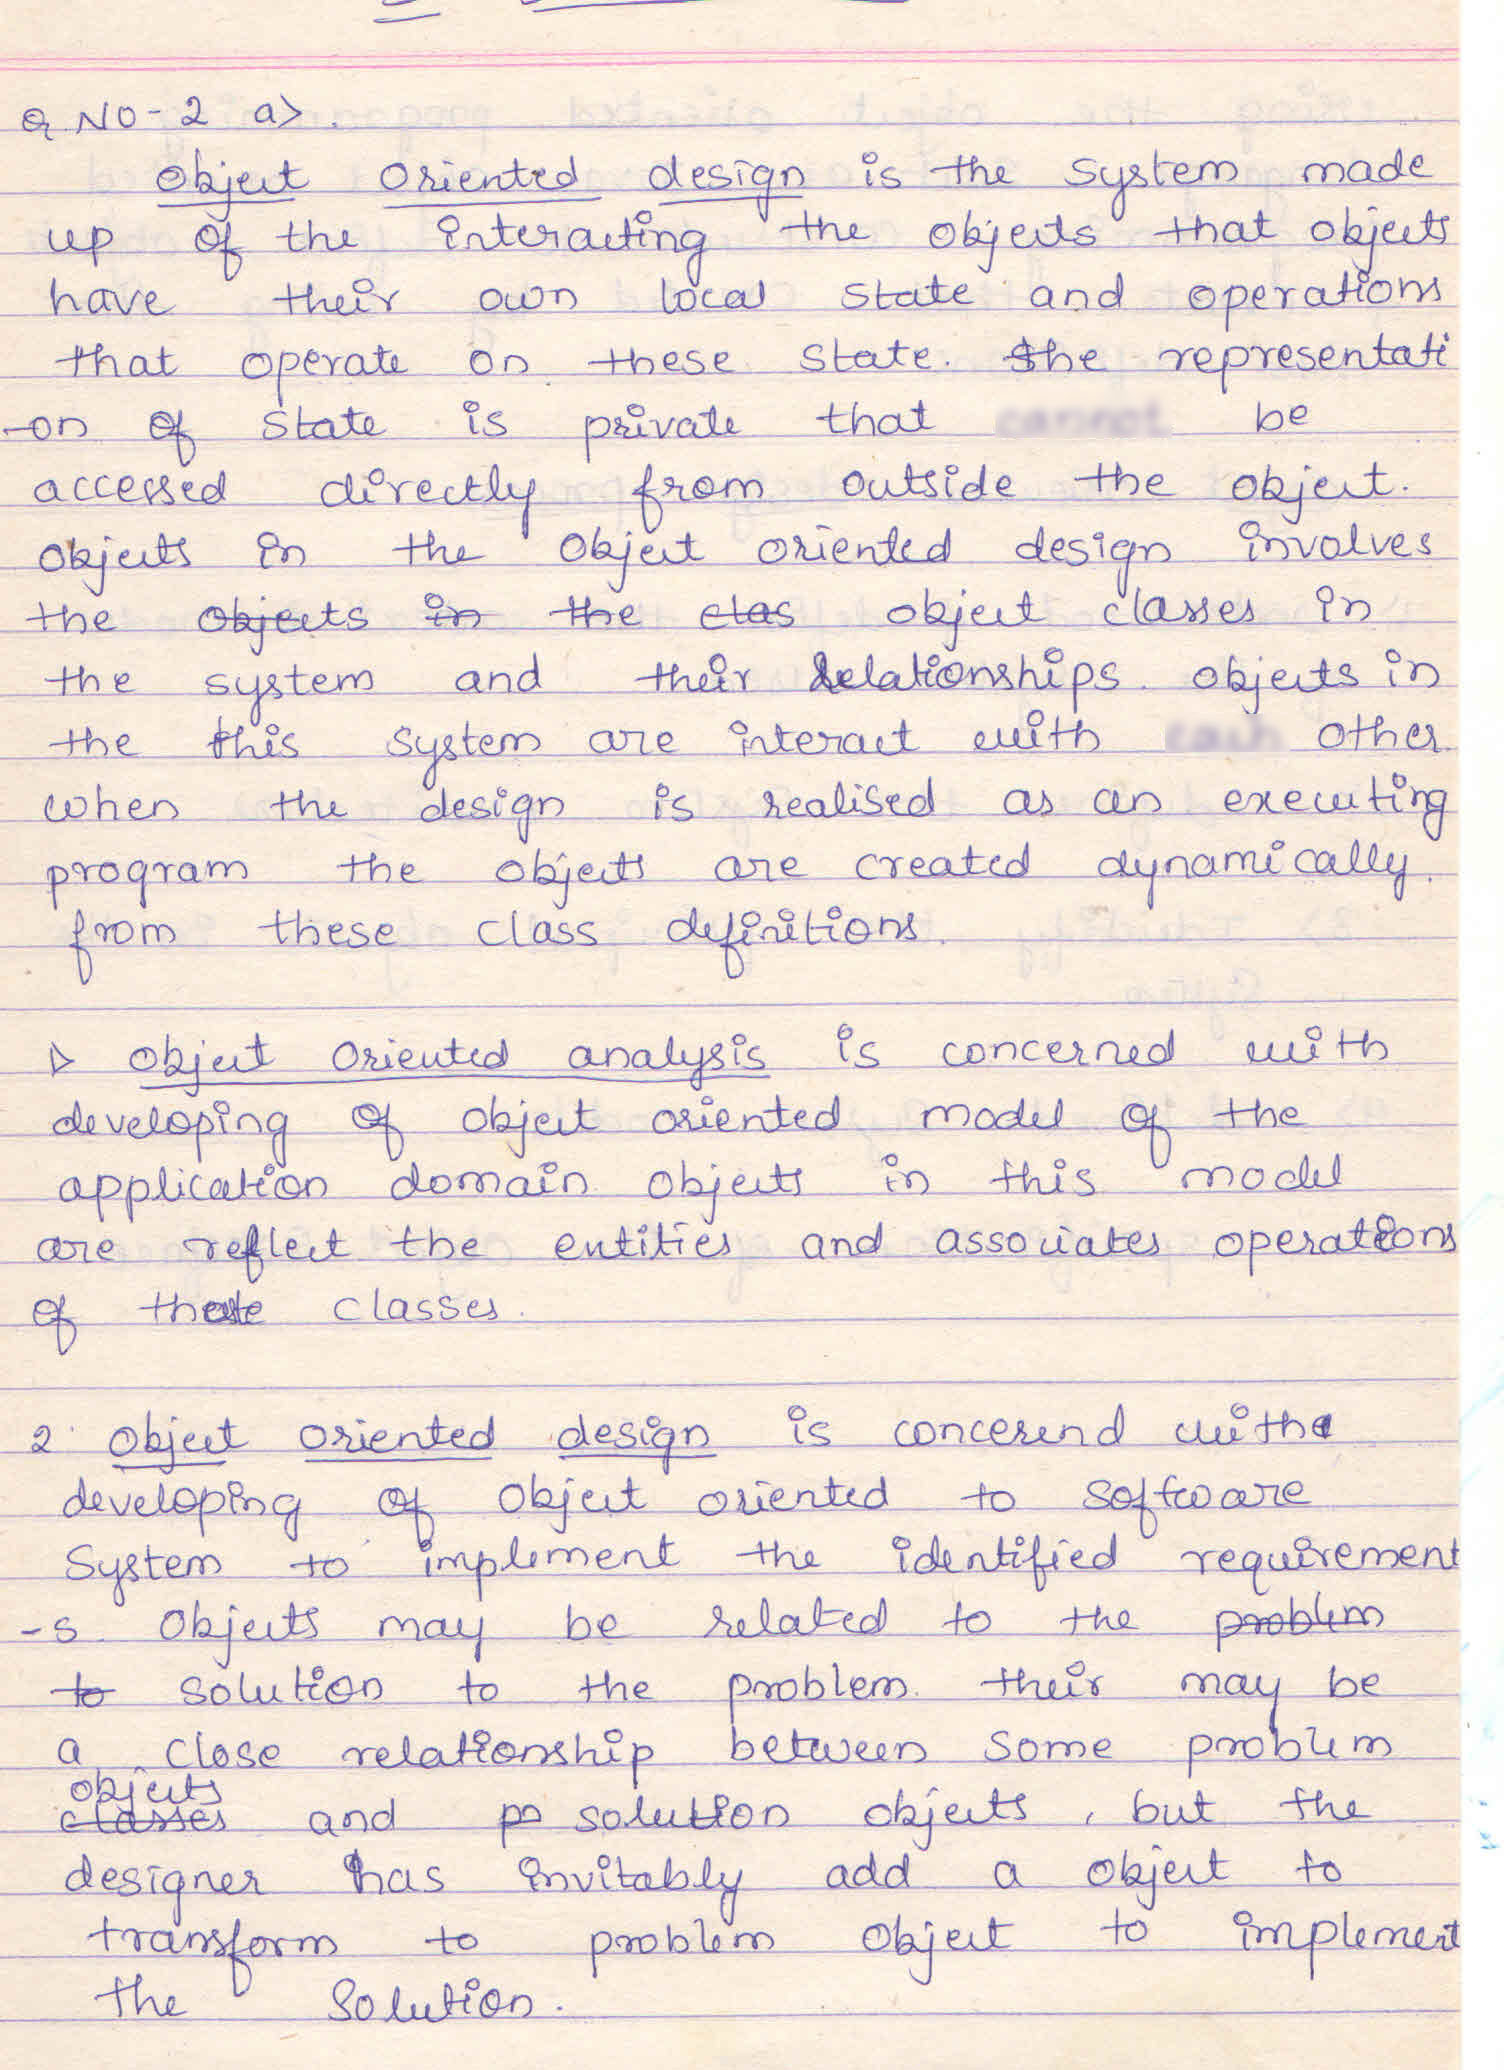 Q NO-2 a>.
Object Oriented design is the system made
up of the interacting the objects that objects
have their own local state and operations
that operate on these state. The representati
-on of state is private that be
accessed directly from outside the object.
Objects in the object oriented design involves
the objects in the clas object classes in
the system and their relationships. objects in
the this system are interact with other.
when the design is realised as an executing
program the objects are created dynamically.
from these class definitions.
1> Object Oriented analysis is concerned with
developing of object oriented model of the
application domain. objects in this model
are reflect the entities and associates operations
of these classes.
2. Object oriented design is concerend with
developing of object oriented to software
system to implement the identified requirement
-s. Objects may be related to the problem
to solution to the problem. their may be
a close relationship between some problem
objects
classes and po solution objects, but the
designer has invitably add a object to
transform to problem object to implement
the solution.